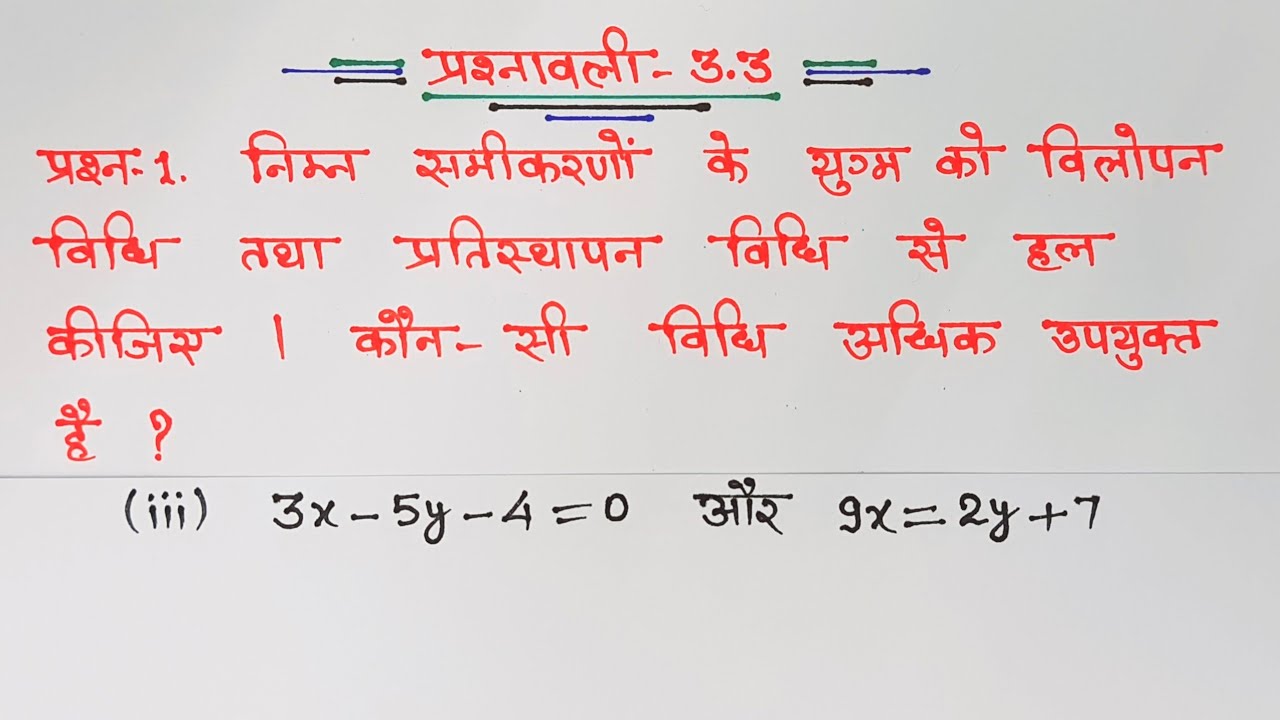 प्रश्नावली - 3.3
प्रश्न-1. निम्न समीकरणों के युग्म को विलोपन
विधि तथा प्रतिस्थापन विधि से हल
कीजिए । कौन-सी विधि अधिक उपयुक्त
है ?
(iii) 3x-5y-4=0 और 9x=2y+7